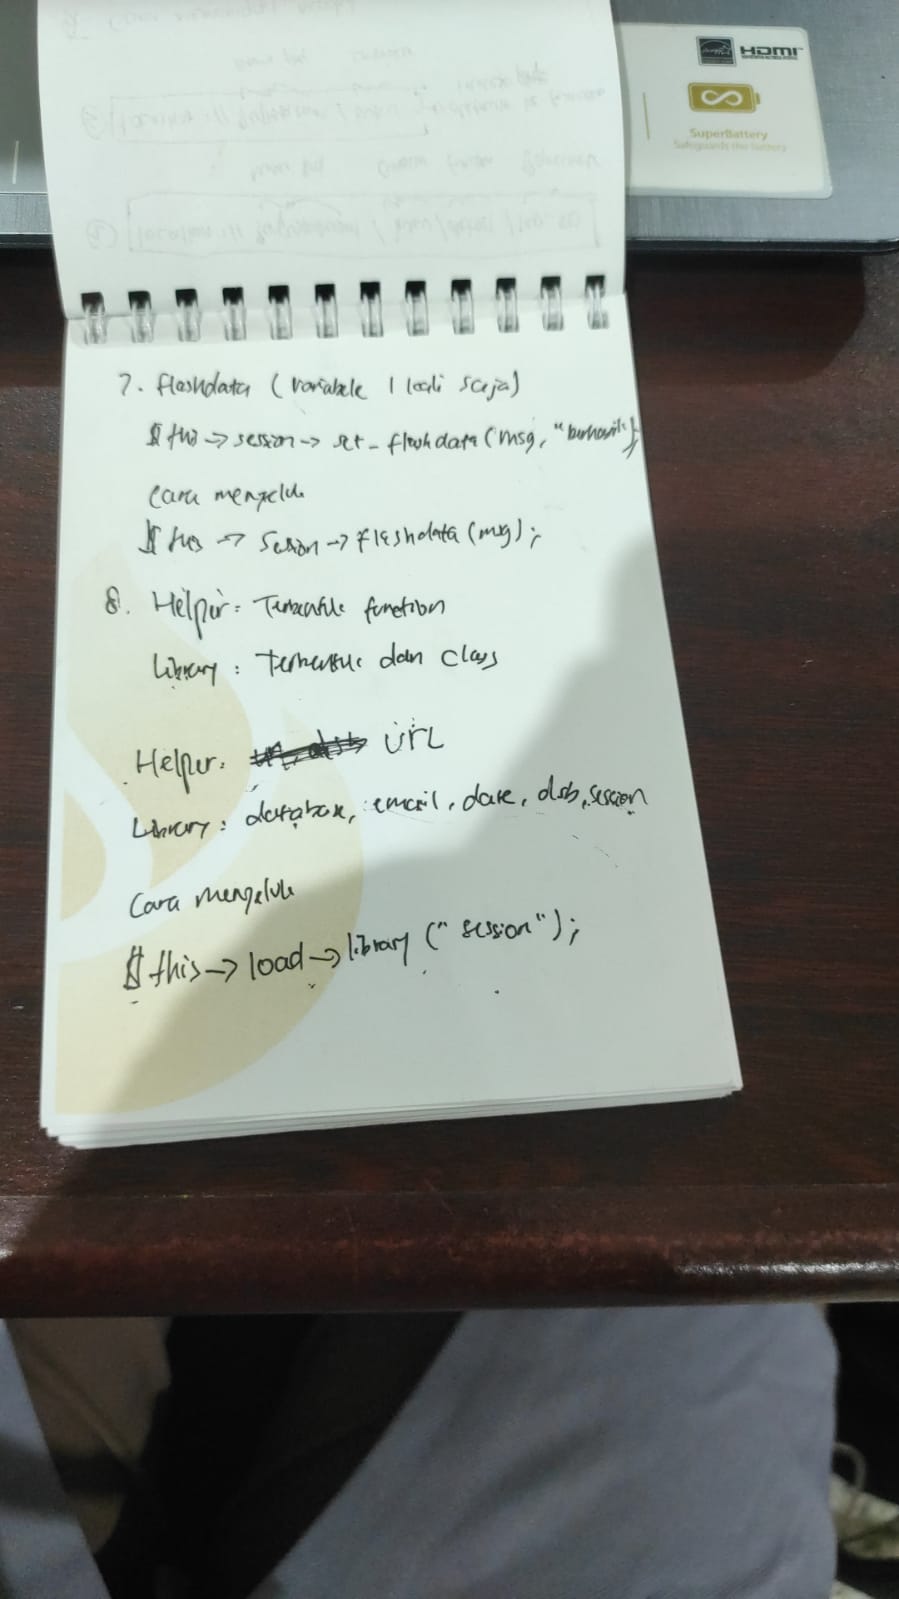 HDMI
SuperBattery
Safeguards the battery
7. flashdata (variabele 1 kali saja)
$ this -> session -> set_flashdata (msg, "berhasil");
Cara mengelu
$ this -> session -> flashdata (msg);
8. Helper: Terbentuk function
Library: Terbentuk dan Class
Helper: URL
Library: database, email, date, dsb, session
Cara mengeluk
$ this -> load -> library ("session");